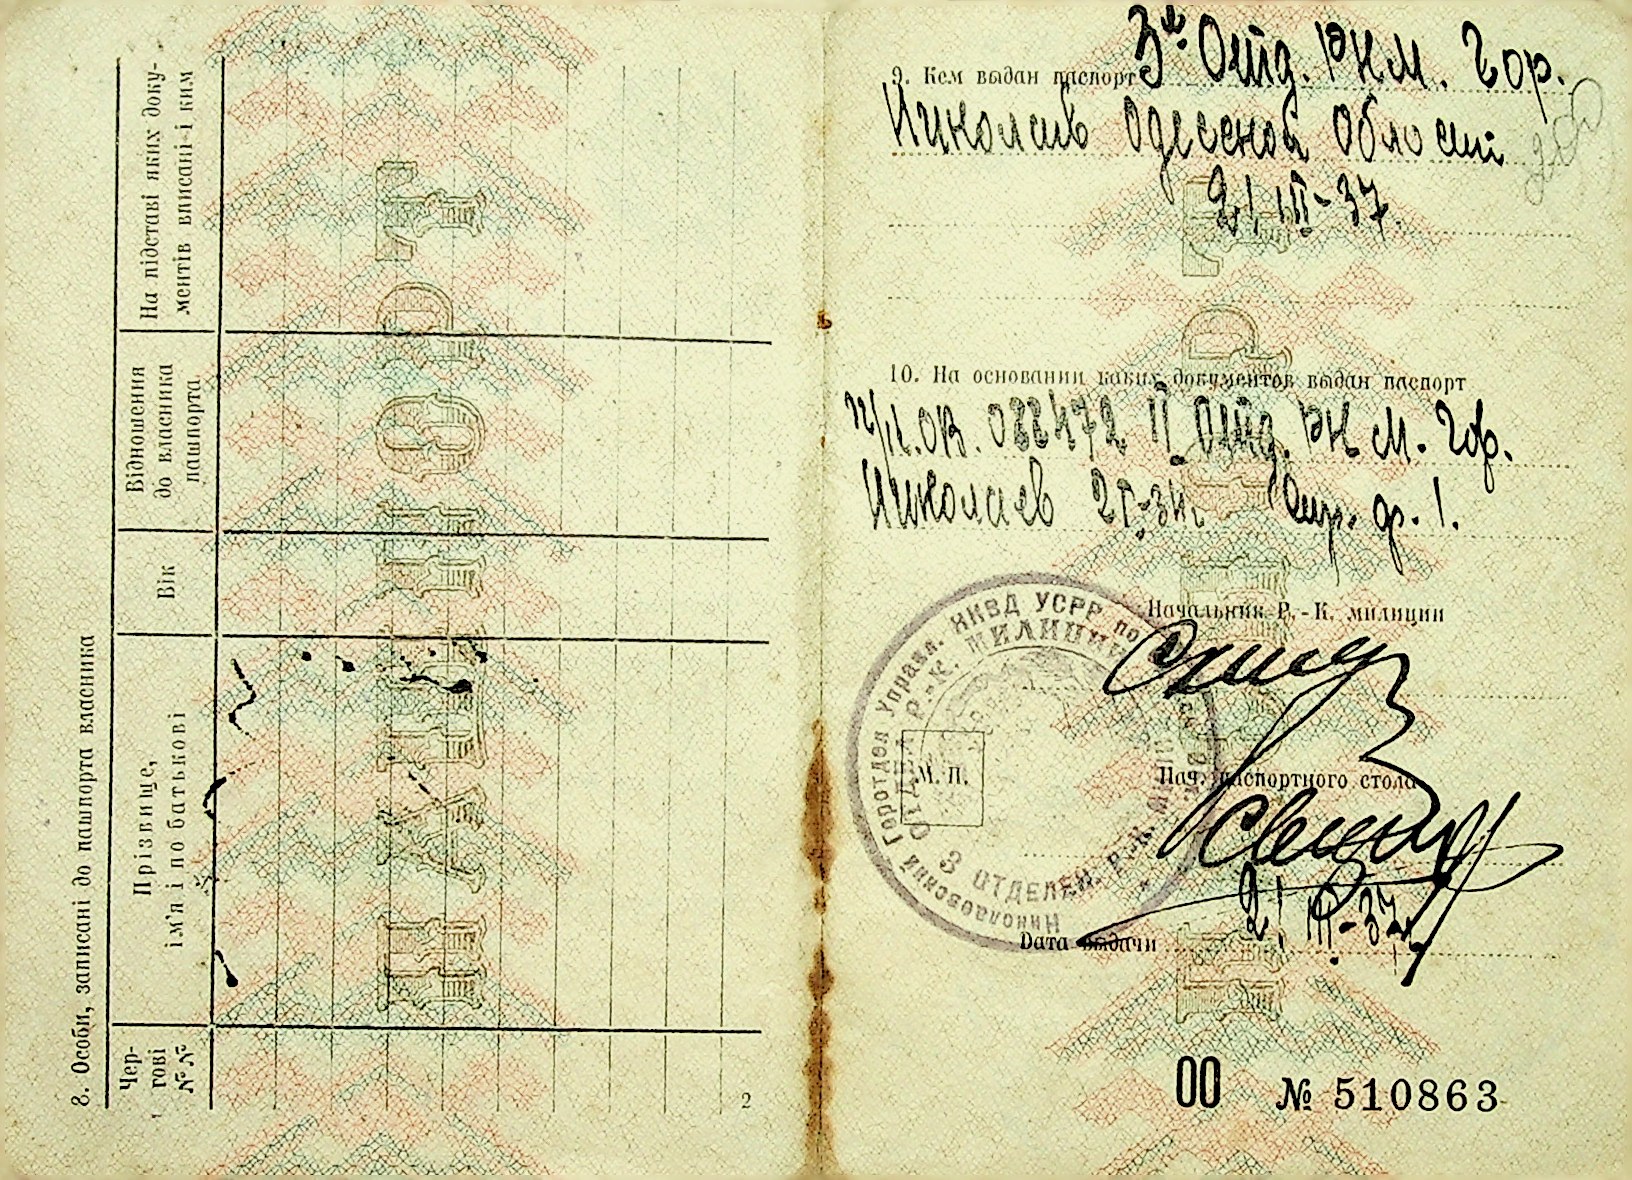 8. Особи, записані до пашпорта власника
Чер-
гові
№ №
Прізвище,
ім'я і по батькові
Вік
Відношення
до власника
пашпорта
На підставі яких доку-
ментів вписані і ким
ПАШПОРТ
2
9. Кем выдан паспорт 3м Отд. РКМ. Гор.
Николаев Одесской Области
21/III-37.
10. На основании каких документов выдан паспорт
Отд. РКМ. Гор.
Николаев
Начальник Р.-К. милиции
М. П.
Николаевский Горотдел Управл. НКВД УСРР по
3 ОТДЕЛЕН. Р.-К. МИЛИЦИИ
Нач. паспортного стола
Дата выдачи 21 III-37г.
00 № 510863